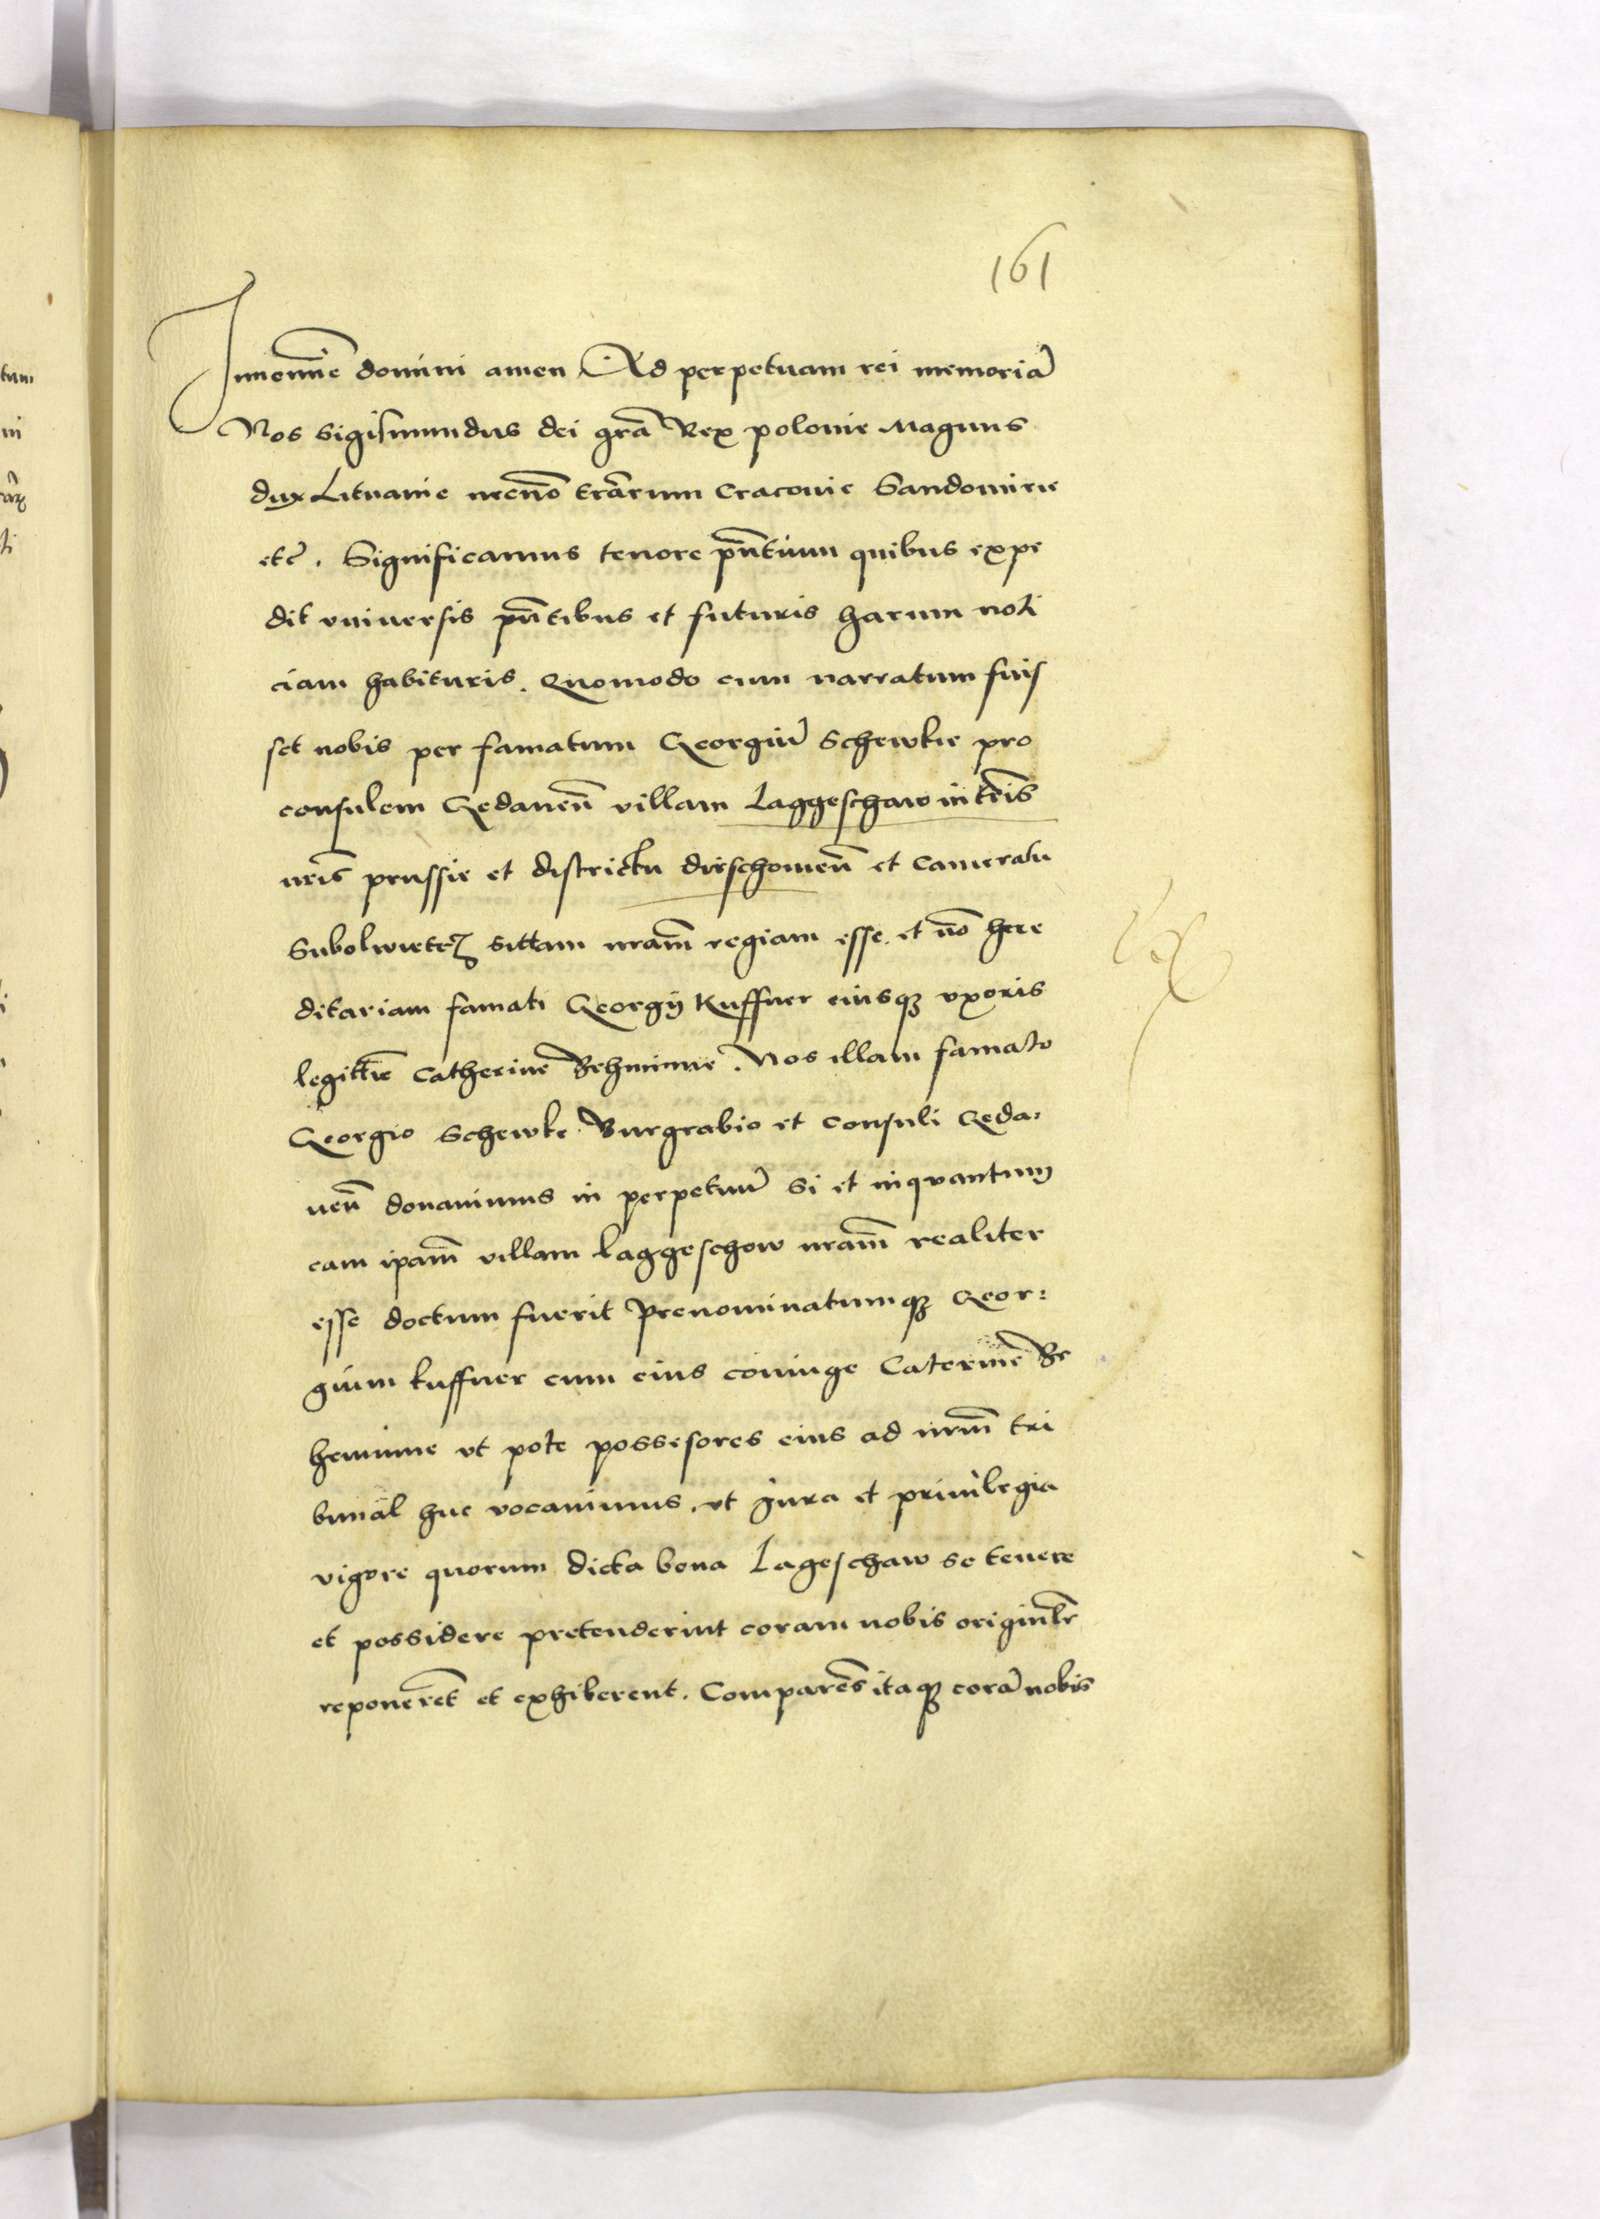 161
Jnnomīe domini amen Ad perpetuam rei memoriā
Nos Sigismundus dei grā Rex polonie Magnus
dux Lituanie necnō trārum Cracovie Sandomirie
etc̄. Significamus tenore pn̄tium quibus expe
dit vniuersis pn̄tibus et futuris harum noti
ciam habituris. Quomodo cum narratum fuis
set nobis per famatum Georgiū Schewke pro
consulem Gedanen̄ villam Laggeschaw in tr̄is
nrīs prussie et districtu dirschouien̄ et Cameratu
sittam nram̄ regiam esse. et nō here
ditariam famati Georgij Kuffner eiusq3 vxoris
legittīe Catherine Behminne. Nos illam famato
Georgio Schewke Burgrabio et Consuli Geda:
nen̄ donauimus in perpetuū si et inquantum
eam ipam̄ villam Laggeschow nram̄ realiter
esse doctum fuerit Prenominatumq3 Geor:
gium kuffner cum eius coniuge Caterinē Be
heminne vt pote possesores eius ad nrm̄ tri
bunāl huc vocauimus. vt jura et priuilegia
vigore quorum dicta bona Lageschaw se tenere
et possidere pretenderint coram nobis originlr̄
reponerēt et exhiberent. Comparēs itaq3 corā nobis